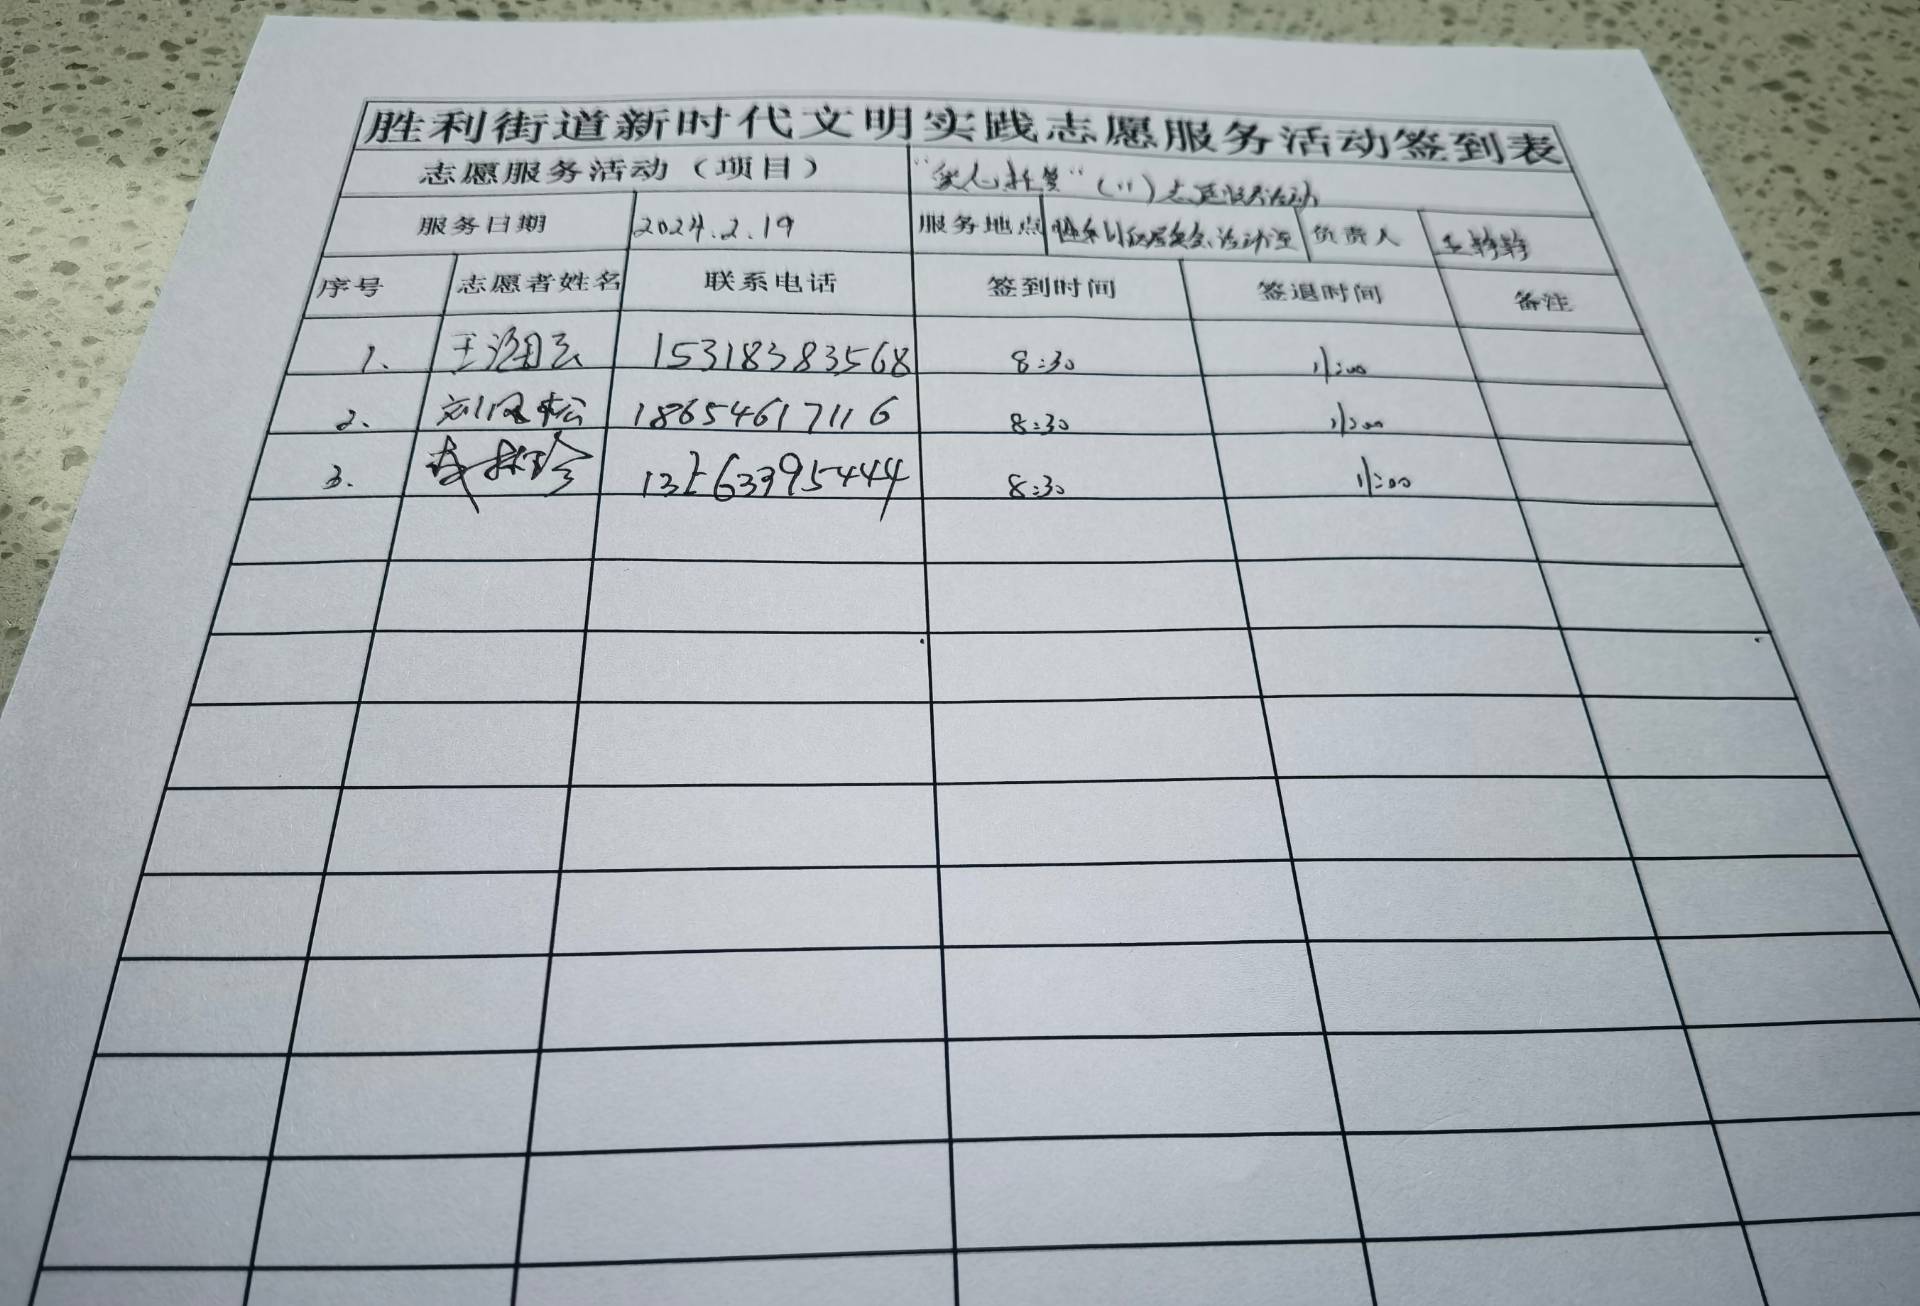 胜利街道新时代文明实践志愿服务活动签到表
志愿服务活动（项目） "爱心托管" (11) 志愿服务活动
服务日期 2024.2.19 服务地点 胜利 活动室 负责人 王
序号 志愿者姓名 联系电话 签到时间 签退时间 备注
1. 王 15318383568 8:30 11:00
2. 刘 松 18654617116 8:30 11:00
3. 珍 8:30 11:00